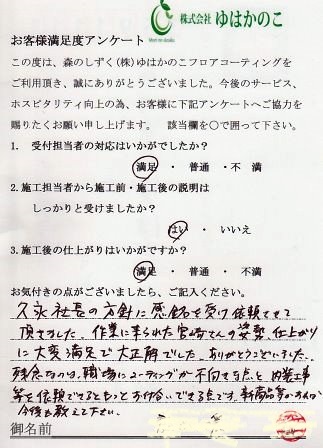 株式会社 ゆはかのこ
お客様満足度アンケート
この度は、森のしずく(株)ゆはかのこフロアコーティングを
ご利用頂き、誠にありがとうございました。今後のサービス、
ホスピタリティ向上の為、お客様に下記アンケートへご協力を
賜りたくお願い申し上げます。 該当欄を〇で囲って下さい。
1. 受付担当者の対応はいかがでしたか?
満足 ・ 普通 ・不 満
2.施工担当者から施工前・施工後の説明は
しっかりと受けましたか?
はい ・ いいえ
3.施工後の仕上がりはいかがですか?
満足 ・ 普通 ・ 不 満
お気付きの点がございましたら、ご記入ください。
久永社長の方針に感銘を受け依頼させて
頂きました。作業に来られた宮崎さんの姿勢、仕上がり
に大変満足で大正解でした。ありがとうございました。
残念なのは、職場にコーティングが不向きな点と内装工事
等を依頼できるともっとお付合いできる点です。新商品等があれば
今後も教えて下さい。
御名前